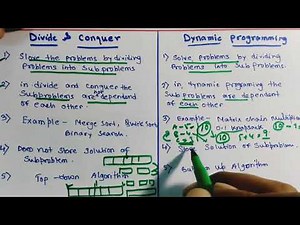 Divide & Conquer
1) Slove the problems by dividing
Problems Into Sub problems
2) in divide and Conquer the
Subproblems are dependent of
each other.
3) Example - Merge Sort, Quick Sort
Binary Search.
4) Does not Store Solution of
Subproblem.
5) Top-down Algorithm
Dynamic programming
1) Solve problems by dividing
Problems into Subproblems.
2) in dynamic programing the
Sub problems are dependent
of each other
3) Example - Matrix chain multiplication
0/1 knapsack
10
10
4) Store Solution of Subproblem.
5) up Algorithm